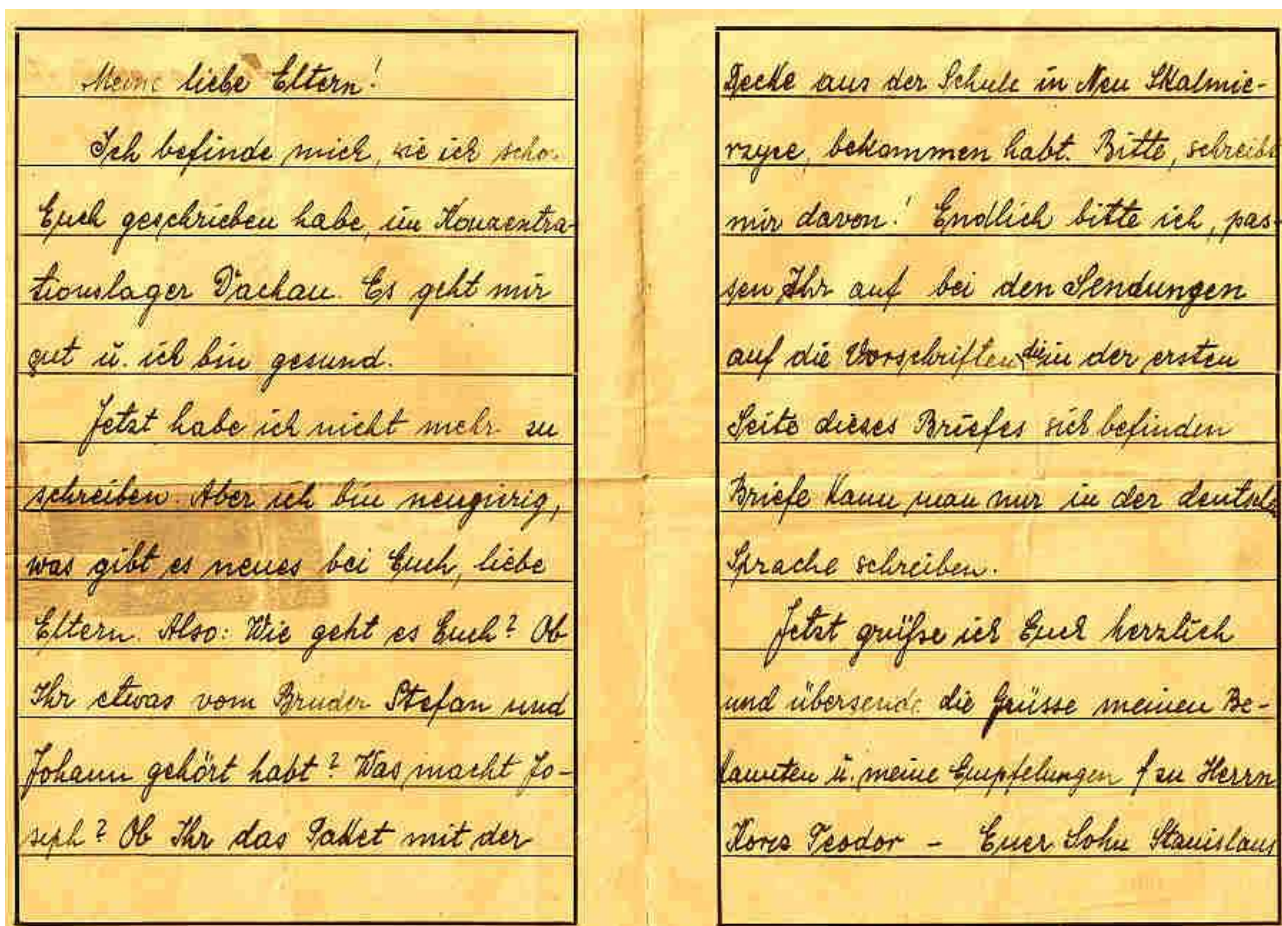 Meine liebe Eltern!
Ich befinde mich, wie ich scho
Euch geschrieben habe, im Konzentra-
tionslager Dachau. Es geht mir
gut u. ich bin gesund.
Jetzt habe ich nicht mehr zu
schreiben. Aber ich bin neugierig,
was gibt es neues bei Euch, liebe
Eltern. Also: Wie geht es Euch? Ob
Ihr etwas vom Bruder Stefan und
Johann gehört habt? Was macht Jo-
seph? Ob Ihr das Paket mit der
Decke aus der Schule in Neu Skalmie-
rzyce, bekommen habt. Bitte, schreibt
mir davon! Endlich bitte ich, pas-
sen Ihr auf bei den Sendungen
auf die Vorschriften, die in der ersten
Seite dieses Briefes sich befinden
Briefe kann man nur in der deutsche
Sprache schreiben.
Jetzt grüße ich Euch herzlich
und übersende die Grüsse meinen Be-
kannten u. meine Empfelungen zu Herrn
Teodor – Euer Sohn Stanislaus